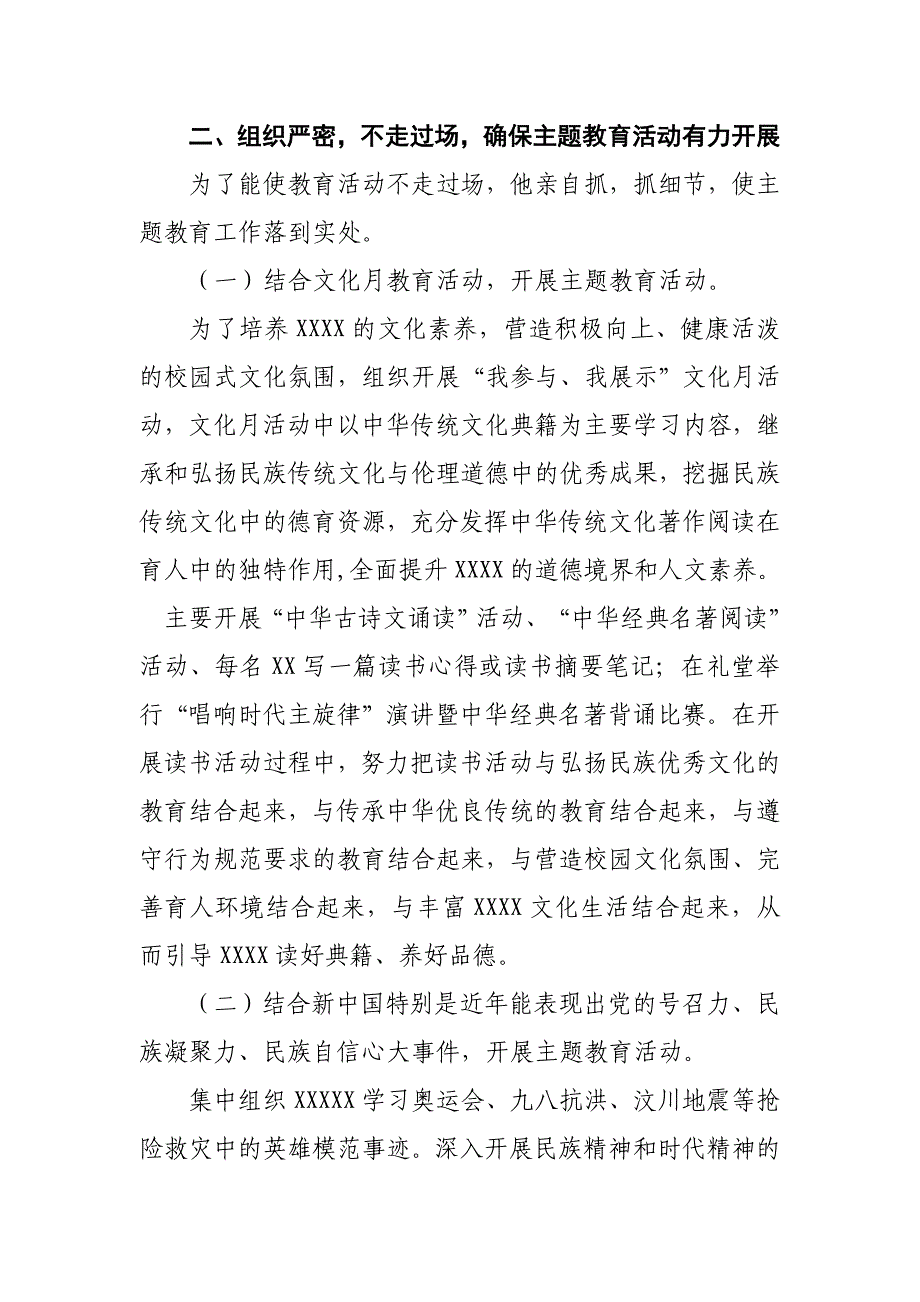 二、组织严密，不走过场，确保主题教育活动有力开展
为了能使教育活动不走过场，他亲自抓，抓细节，使主
题教育工作落到实处。
（一）结合文化月教育活动，开展主题教育活动。
为了培养 XXXX 的文化素养，营造积极向上、健康活泼
的校园式文化氛围，组织开展“我参与、我展示”文化月活
动，文化月活动中以中华传统文化典籍为主要学习内容，继
承和弘扬民族传统文化与伦理道德中的优秀成果，挖掘民族
传统文化中的德育资源，充分发挥中华传统文化著作阅读在
育人中的独特作用,全面提升 XXXX 的道德境界和人文素养。
主要开展“中华古诗文诵读”活动、“中华经典名著阅读”
活动、每名 XX 写一篇读书心得或读书摘要笔记；在礼堂举
行“唱响时代主旋律”演讲暨中华经典名著背诵比赛。在开
展读书活动过程中，努力把读书活动与弘扬民族优秀文化的
教育结合起来，与传承中华优良传统的教育结合起来，与遵
守行为规范要求的教育结合起来，与营造校园文化氛围、完
善育人环境结合起来，与丰富 XXXX 文化生活结合起来，从
而引导 XXXX 读好典籍、养好品德。
（二）结合新中国特别是近年能表现出党的号召力、民
族凝聚力、民族自信心大事件，开展主题教育活动。
集中组织 XXXXX 学习奥运会、九八抗洪、汶川地震等抢
险救灾中的英雄模范事迹。深入开展民族精神和时代精神的